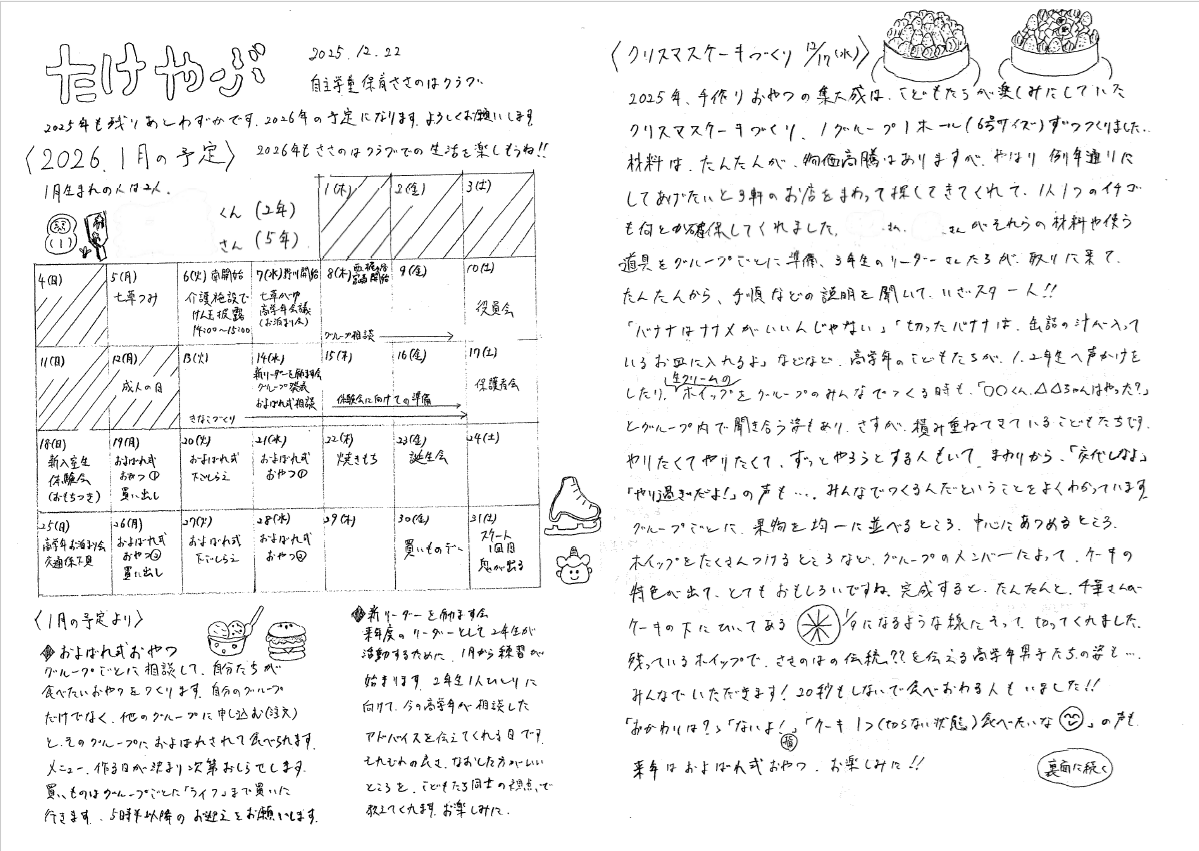 たけやぶ
2025.12.22
自主学童保育ささのはクラブ
2025年も残りあとわずかです。2026年の予定になります。よろしくお願いします。
〈2026.1月の予定〉
2026年もささのはクラブでの生活を楽しもうね!!
1月生まれの人は2人。
くん (2年)
さん (5年)
1(木) 2(金) 3(土)
4(日)
5(月) 七草つみ
6(火)
介護施設で
けん玉披露
14:00〜15:00
7(水)
七草がゆ
高学年会議
(お泊まり会)
8(木)
グループ相談
9(金)
10(土) 役員会
11(日)
12(月) 成人の日
13(火)
きなこづくり
14(水)
新リーダーを励ます会
グループ発表
およばれ式相談
15(木)
体験会に向けての準備
16(金)
17(土) 保護者会
18(日)
新入室生
体験会
(おもちつき)
19(月)
およばれ式
おやつ①
買い出し
20(火)
およばれ式
下ごしらえ
21(水)
およばれ式
おやつ①
22(木) 焼きもち
23(金) 誕生会
24(土)
25(日)
高学年お泊り会
26(月)
およばれ式
おやつ②
買い出し
27(火)
およばれ式
下ごしらえ
28(水)
およばれ式
おやつ②
29(木)
30(金) 買いものデー
31(土)
スケート
1回目
〈1月の予定より〉
およばれ式おやつ
グループごとに相談して、自分たちが
食べたいおやつをつくります。自分のグループ
だけでなく、他のグループに申し込む(注文)
と、そのグループにおよばれされて食べられます。
メニュー、作る日が決まり次第おしらせします。
買いものはグループごとに「ライフ」まで買いに
行きます。5時半以降のお迎えをお願いします。
新リーダーを励ます会
来年度のリーダーとして2年生が
活動するために、1月から練習が
始まります。2年生1人ひとりに
向けて、今の高学年が相談した
アドバイスを伝えてくれる日です。
それぞれの良さ、なおした方がいい
ところを、こどもたち同士の視点で
教えてくれます。お楽しみに。
〈クリスマスケーキづくり 12/17(水)〉
2025年、手作りおやつの集大成は、こどもたちが楽しみにしていた
クリスマスケーキづくり、1グループ1ホール(6号サイズ)ずつつくりました。
材料は、たんたんが、物価高騰はありますが、やはり例年通りに
してあげたいと3軒のお店をまわって探してきてくれて、1人1つのイチゴ
も何とか確保してくれました。 さん、 さんがそれらの材料や使う
道具をグループごとに準備、3年生のリーダーさんたちが、取りに来て、
たんたんから、手順などの説明を聞いて、いざスタート!!
「バナナはナナメがいいんじゃない」「切ったバナナは、缶詰の汁が入って
いるお皿に入れるよ」などなど、高学年のこどもたちが、1.2年生へ声かけを
したり、生クリームのホイップをグループのみんなでつくる時も、「○○くん、△△ちゃんはやった?」
とグループ内で聞き合う姿もあり、さすが、積み重ねてきているこどもたちです。
やりたくてやりたくて、ずっとやろうとする人もいて、まわりから、「交代しなよ」
「やり過ぎだよ!」の声も…。みんなでつくるんだということをよくわかっています。
グループごとに、果物を均一に並べるところ、中心にあつめるところ、
ホイップをたくさんつけるところなど、グループのメンバーによって、ケーキの
特色が出て、とてもおもしろいですね。完成すると、たんたんと、千華さんが
ケーキの下にひいてある 1/9になるような線にそって、切ってくれました。
残っているホイップで、ささのはの伝統??を伝える高学年男子たちの姿も…。
みんなでいただきます!20秒もしないで食べおわる人もいました!!
「おかわりは?」「ないよ!」「ケーキ1つ(切らない状態)食べたいな」の声も
来年はおよばれ式おやつ、お楽しみに!!
裏面に続く